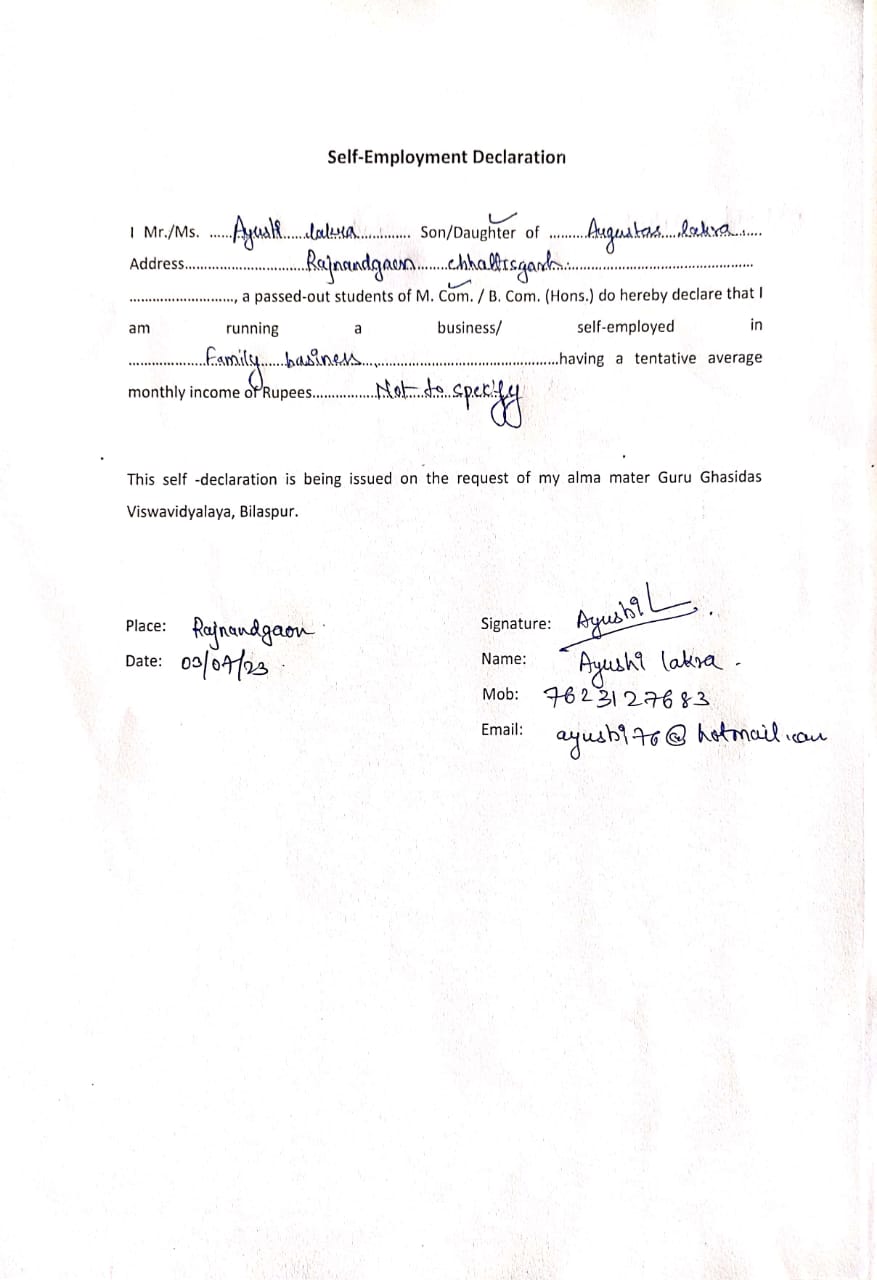 Self-Employment Declaration
I Mr./Ms. ......Ayushi.....lakra............. Son/Daughter of .........Augustas....lakra......
Address............................Rajnandgaon.......chhattisgarh.............................................
.........................., a passed-out students of M. Com. / B. Com. (Hons.) do hereby declare that I
am running a business/ self-employed in
...................Family......business.....,............................................having a tentative average
monthly income of Rupees................Not...to..specify
This self -declaration is being issued on the request of my alma mater Guru Ghasidas
Viswavidyalaya, Bilaspur.
Place: Rajnandgaon
Date: 03/04/23
Signature: Ayushi L
Name: Ayushi lakra
Mob: 7623127683
Email: ayushi76@hotmail.com